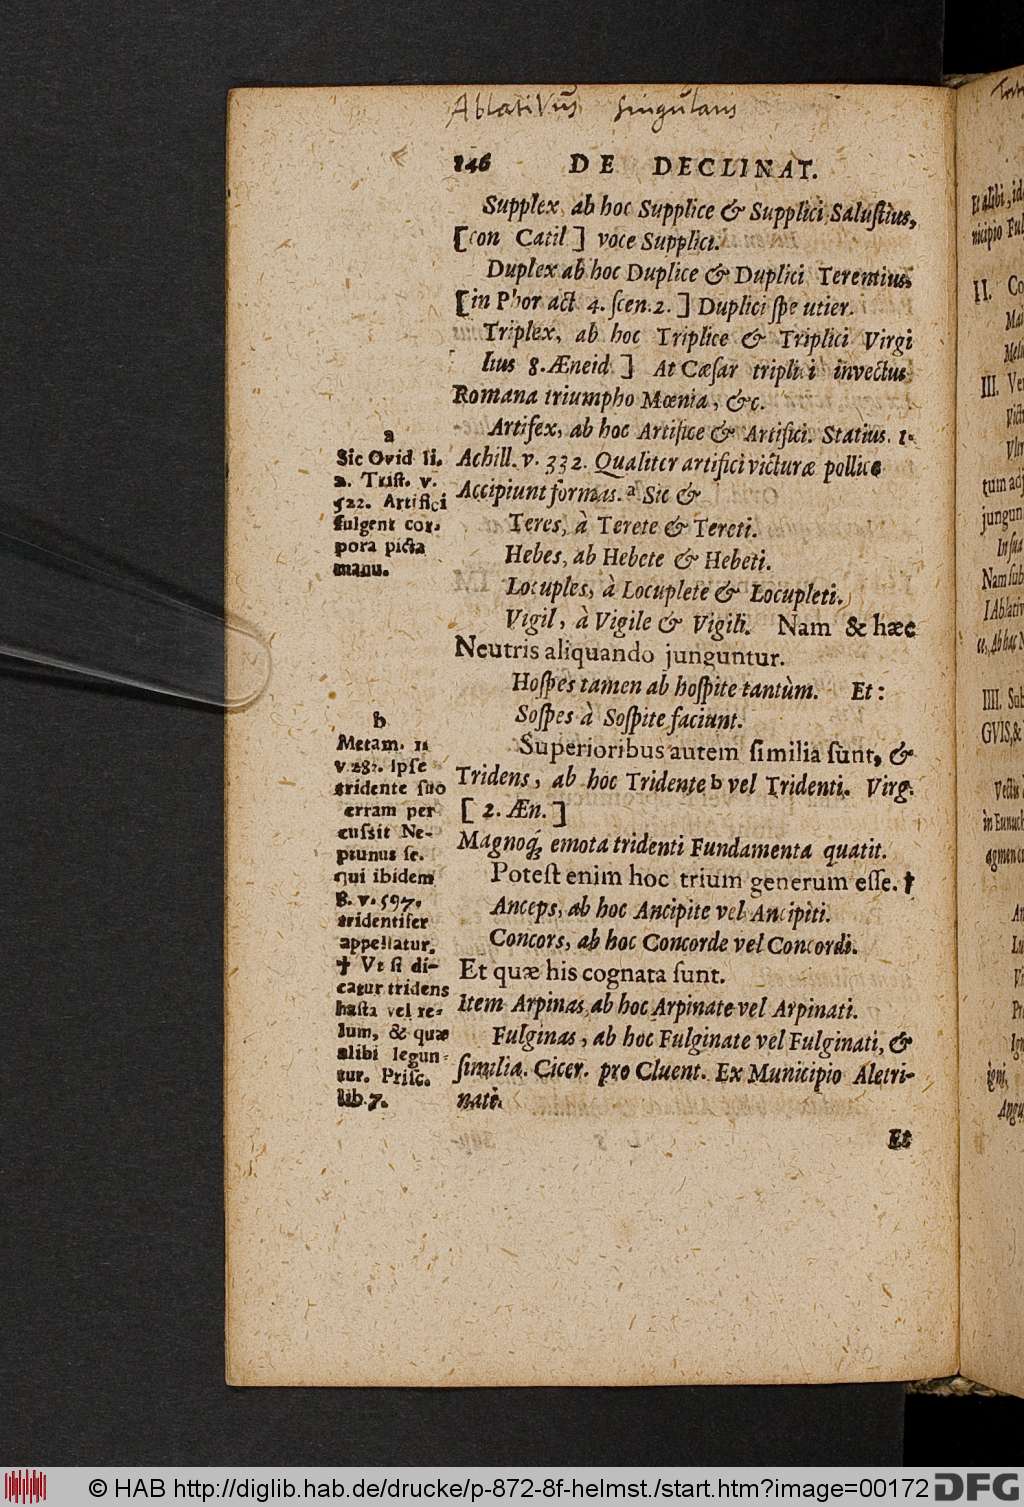 AblatiVus singularis
146 DE DECLINAT.
Supplex, ab hoc Supplice & Supplici Salustius,
[con Catil] voce Supplici.
Duplex ab hoc Duplice & Duplici Terentius
[in Phor act 4. ſcen. 2.] Duplici ſpe utier.
Triplex, ab hoc Triplice & Triplici Virgi
lius 8. Æneid ] At Cæſar triplici invectus
Romana triumpho Mœnia, &c.
Artifex, ab hoc Artifice & Artifici. Statius. 1.
Achill. v. 332. Qualiter artifici victuræ pollice
Accipiunt formas. a Sic &
Teres, à Terete & Tereti.
Hebes, ab Hebete & Hebeti.
Locuples, à Locuplete & Locupleti.
Vigil, à Vigile & Vigili. Nam & hæc
Neutris aliquando junguntur.
Hoſpes tamen ab hoſpite tantùm. Et:
Soſpes à Soſpite faciunt.
Superioribus autem ſimilia ſunt, &
Tridens, ab hoc Tridente b vel Tridenti. Virg.
[ 2. Æn. ]
Magnoq́; emota tridenti Fundamenta quatit.
Poteſt enim hoc trium generum eſſe. †
Anceps, ab hoc Ancipite vel Ancipiti.
Concors, ab hoc Concorde vel Concordi.
Et quæ his cognata ſunt.
Item Arpinas, ab hoc Arpinate vel Arpinati.
Fulginas, ab hoc Fulginate vel Fulginati, &
ſimilia. Cicer. pro Cluent. Ex Municipio Aletri-
nate.
Et
a
Sic Ovid li.
2. Triſt. v.
522. Artifici
fulgent cor-
pora picta
manu.
b
Metam. 1
v 28. Ipſe
tridente ſuo
erram per
cuſsit Ne-
ptunus ſe.
qui ibidem
8. v. 597.
tridentifer
appellatur.
† Vt ſi di-
catur tridens
haſta vel te-
lum, & quæ
alibi legun-
tur. Priſc.
lib 7.
Et alibi,
nicipio
II.
III.
tum
jungun
In ſua
Nam
IIII. Sub
GVIS, &
in Eunuch
igni,
© HAB http://diglib.hab.de/drucke/p-872-8f-helmst./start.htm?image=00172
DFG